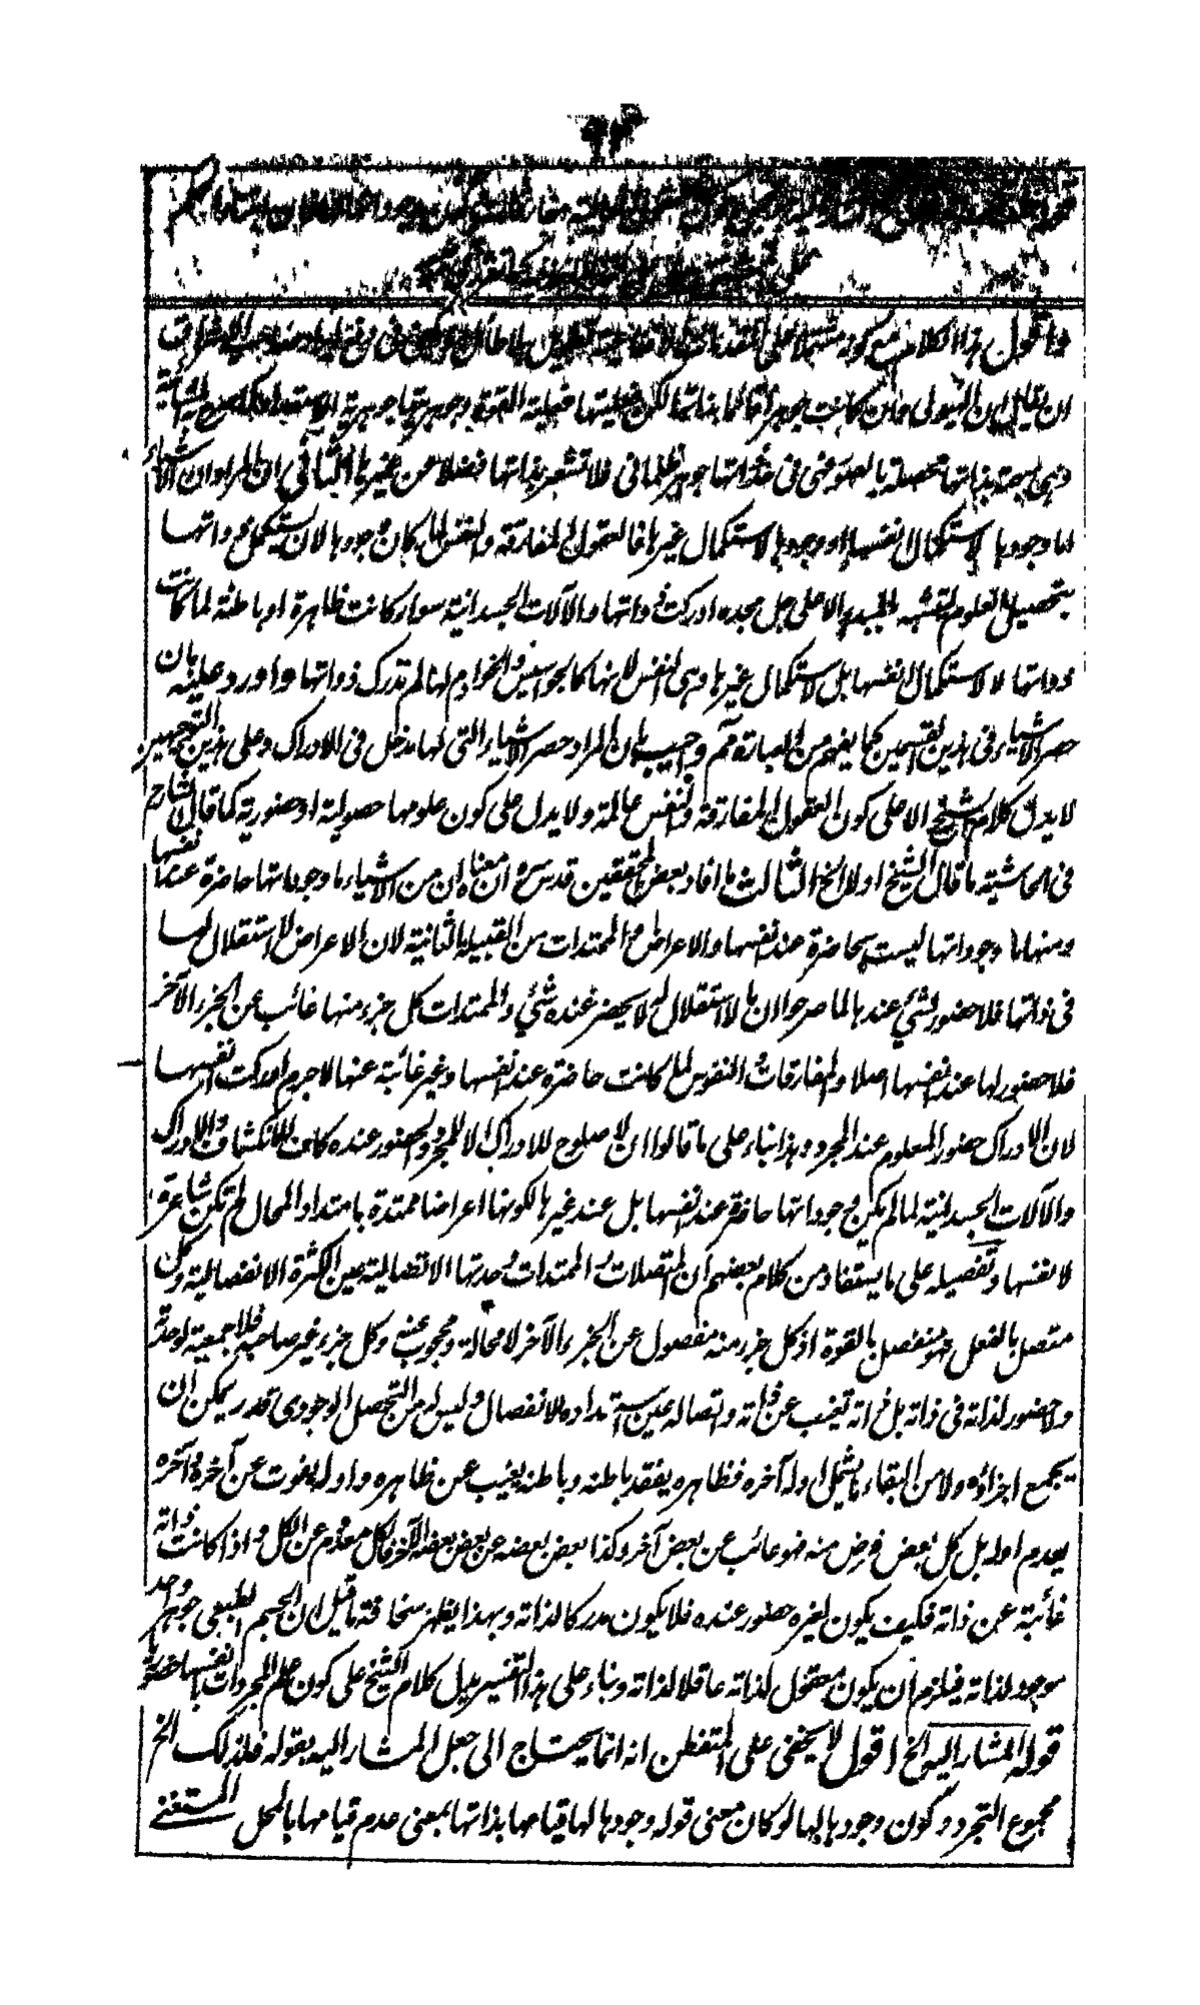 واقول هذا الكلام مع كونه مشتملا على المقدمات
ان يقال ان الهيولى وان كانت جوهرا قائما بذاتها لكن فعليتها فعلية القوة وجوهريتها جوهرية الاستعداد
وهى مبهمة بذاتها متحصلة بالصورة فهى فى حد ذاتها جوهر ظلمانى فلا تشعر بذاتها فضلا عن غيرها الثانى ان المراد ان الاشياء
اما وجودها لاستكمال نفسها او وجودها لاستكمال غيرها فالعقول المفارقة والنفس لما كان وجودها لان يستكمل ذواتها
بتحصيل العلوم والتشبه بالمبدء الاعلى جل مجده ادركت ذواتها والآلات الجسدانية سواء كانت ظاهرة او باطنة لما كانت
ذواتها لا لاستكمال انفسها بل لاستكمال غيرها وهى النفس لانها كالجواسيس والخوادم لها لم تدرك ذواتها واورد عليه بان
حصر الاشياء فى هذين القسمين كما يفهم من العبارة مم واجيب بان المراد حصر الاشياء التى لها مدخل فى الادراك وعلى هذين التوجيهين
لا يدل كلام الشيخ الا على كون العقول المفارقة والنفس عالمة ولا يدل على كون علومها حصولية او حضورية كما قال الشارح
فى الحاشية ما قال الشيخ اولا الخ الثالث ما افاد بعض المحققين قدس سره ان معناه ان من الاشياء ما وجوداتها حاضرة عند انفسها
ومنها ما وجوداتها ليست بحاضرة عند نفسها والاعراض والممتدات من القبيلة الثانية لان الاعراض لا استقلال لها
فى ذواتها فلا حضور لشئ عندها لما صرحوا ان ما لا استقلال له لا يحضر عنده شئ والممتدات كل جزء منها غائب عن الجزء الآخر
فلا حضور لها عند انفسها اصلا والمفارقات والنفوس لما كانت حاضرة عند انفسها وغير غائبة عنها لا جرم ادركت انفسها
لان الادراك حضور المعلوم عند المجرد وهذا بناء على ما قالوا ان لا صلوح للادراك الا للمجرد والحضور عنده كاف للانكشاف والادراك
والآلات الجسدانية لما لم يكن وجوداتها حاضرة عند انفسها بل عند غيرها لكونها اعراضا ممتدة بامتداد المحال لم تكن شاعرة
لانفسها وتفصيله على ما يستفاد من كلام بعضهم ان المتصلات والممتدات وحدتها الاتصالية عين الكثرة الانفصالية وكل
متصل بالفعل فهو منفصل بالقوة اذ كل جزء منه مفصول عن الجزء الآخر لا محالة ومحجوب عنه وكل جزء غير صاحبه فلا جمعية لوحدته
ولا حضور لذاته فى ذاته بل ذاته تغيب عن ذاته واتصاله عين استعداده للانفصال وليس له من التحصل الوجودى قدر يمكن ان
يجمع اجزائه ولا من البقاء ما يشمل اوله آخره فظاهره يفقد باطنه وباطنه يغيب عن ظاهره واوله يفوت عن آخره وآخره
يعدم اوله بل كل بعض فرض منه فهو غائب عن بعض آخر وكذا بعض بعضه عن بعض بعضه الآخر فالكل معدوم عن الكل و اذا كانت ذاته
غائبة عن ذاته فكيف يكون لغيره حضور عنده فلا يكون مدركا لذاته وبهذا يظهر سخافة ما قيل ان الجسم الطبيعى جوهر واحد
موجود لذاته فيلزم ان يكون معقول لذاته عاقلا لذاته وبناء على هذا التفسير يدل كلام الشيخ على كون علم المجردات بانفسها حضوريا
قوله المشار اليه الخ اقول لا يخفى على المتفطن انه انما يحتاج الى جعل المشار اليه بقوله فلذلك الخ
مجموع التجرد وكون وجودها لها لو كان معنى قوله وجودها لها قيامها بذاتها بمعنى عدم قيامها بالمحل المستغنى